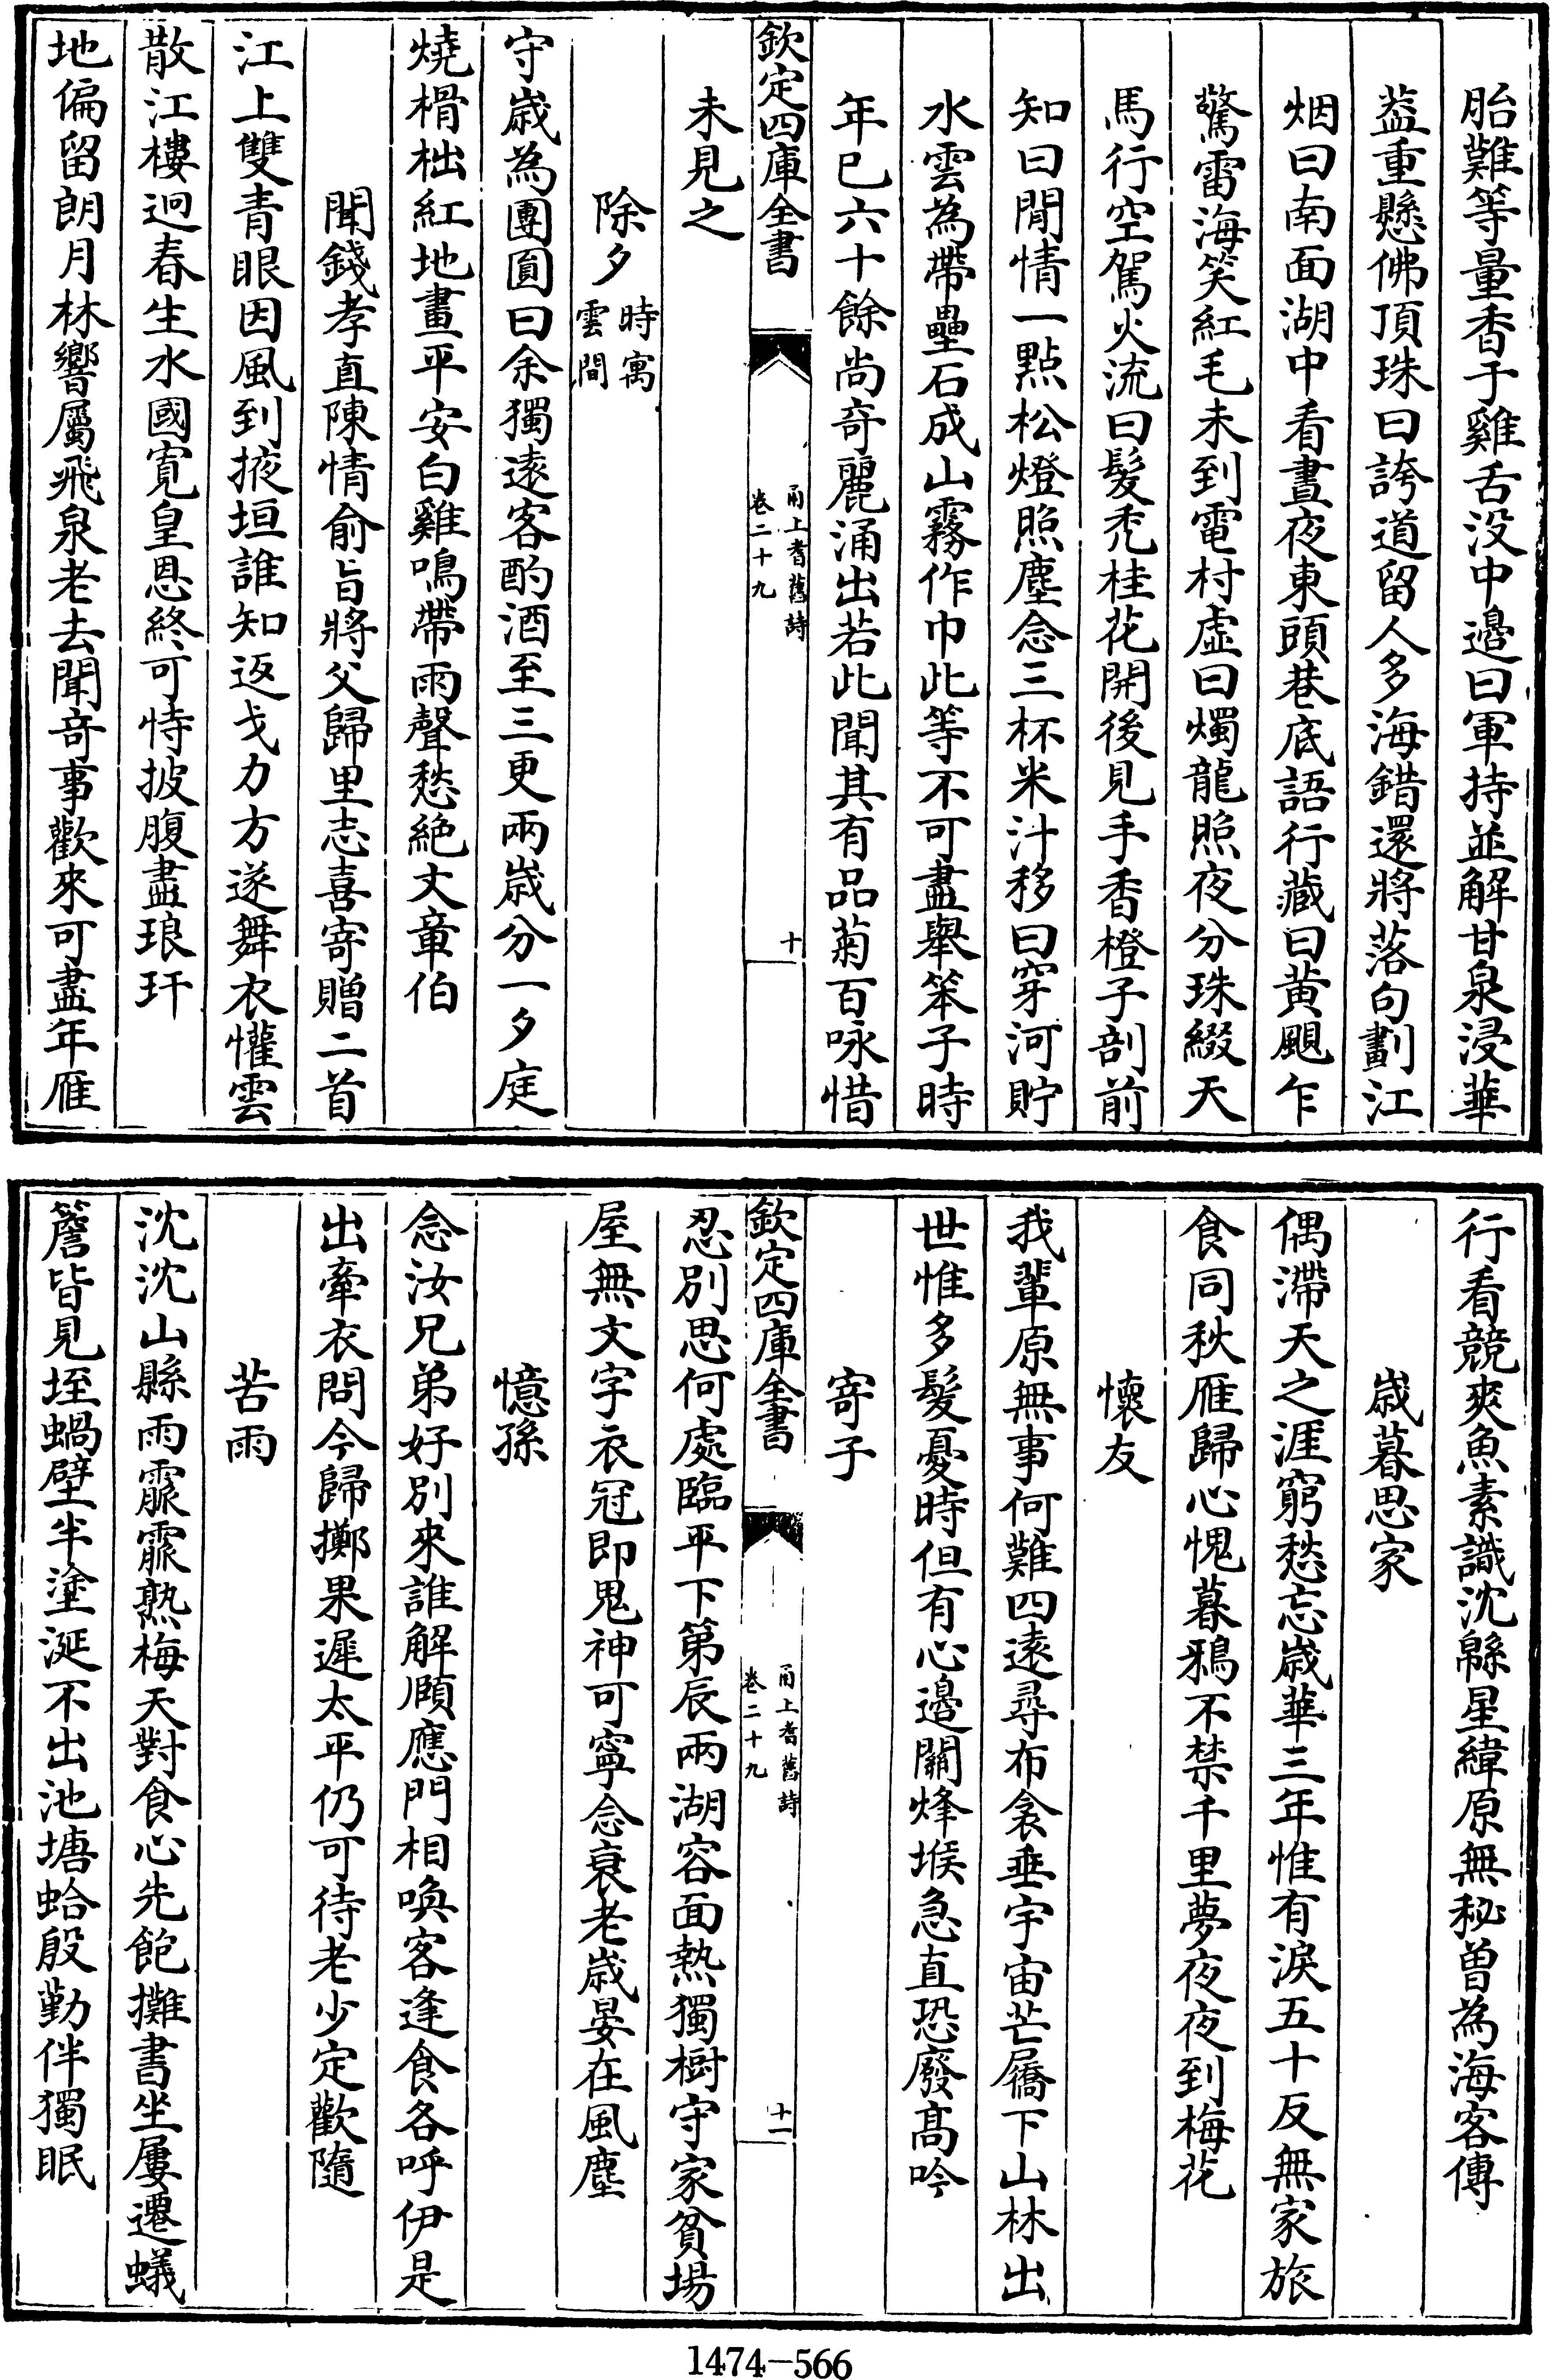 胎難等量香于雞舌没中邊曰軍持並解甘泉浸華
葢重懸佛頂珠曰誇道留人多海錯還將落句劃江
烟曰南面湖中看晝夜東頭巷底語行藏曰黄颶乍
驚雷海笑紅毛未到電村虛曰燭龍照夜分珠綴天
馬行空駕火流曰髮秃桂花開後見手香橙子剖前
知曰閒情一點松燈照塵念三杯米汁移曰穿河貯
水雲為帶壘石成山霧作巾此等不可盡舉笨子時
年已六十餘尚竒麗涌出若此聞其有品菊百咏惜
欽定四庫全書
甬上耆舊詩
卷二十九
十
未見之
除夕時寓雲間
守歲為團圓曰余獨遠客酌酒至三更兩歲分一夕庭
燒榾柮紅地畫平安白雞鳴帶雨聲愁絶丈章伯
聞錢孝直陳情俞旨將父歸里志喜寄贈二首
江上雙青眼因風到掖垣誰知返戈力方遂舞衣懽雲
散江樓迥春生水國寛皇恩終可恃披腹盡琅玕
地偏留朗月林響屬飛泉老去聞竒事歡來可盡年雁
行看競爽魚素識沈緜星緯原無秘曽為海客傳
歲暮思家
偶滯天之涯窮愁忘歲華三年惟有淚五十反無家旅
食同秋雁歸心愧暮鴉不禁千里夢夜夜到梅花
懷友
我輩原無事何難四遠尋布衾垂宇宙芒屩下山林出
世惟多髮憂時但有心邊關烽堠急直恐廢髙吟
寄子
欽定四庫全書
甬上耆舊詩
卷二十九
十一
忍別思何處臨平下第辰兩湖容面熱獨樹守家貧場
屋無文字衣冠即鬼神可寧念衰老歲晏在風塵
憶孫
念汝兄弟好別來誰解頤應門相喚客逢食各呼伊是
出牽衣問今歸擲果遲太平仍可待老少定歡隨
苦雨
沈沈山縣雨霢霢熟梅天對食心先飽攤書坐屢遷蟻
簷皆見垤蝸壁半塗涎不出池塘蛤殷勤伴獨眠
1474-566